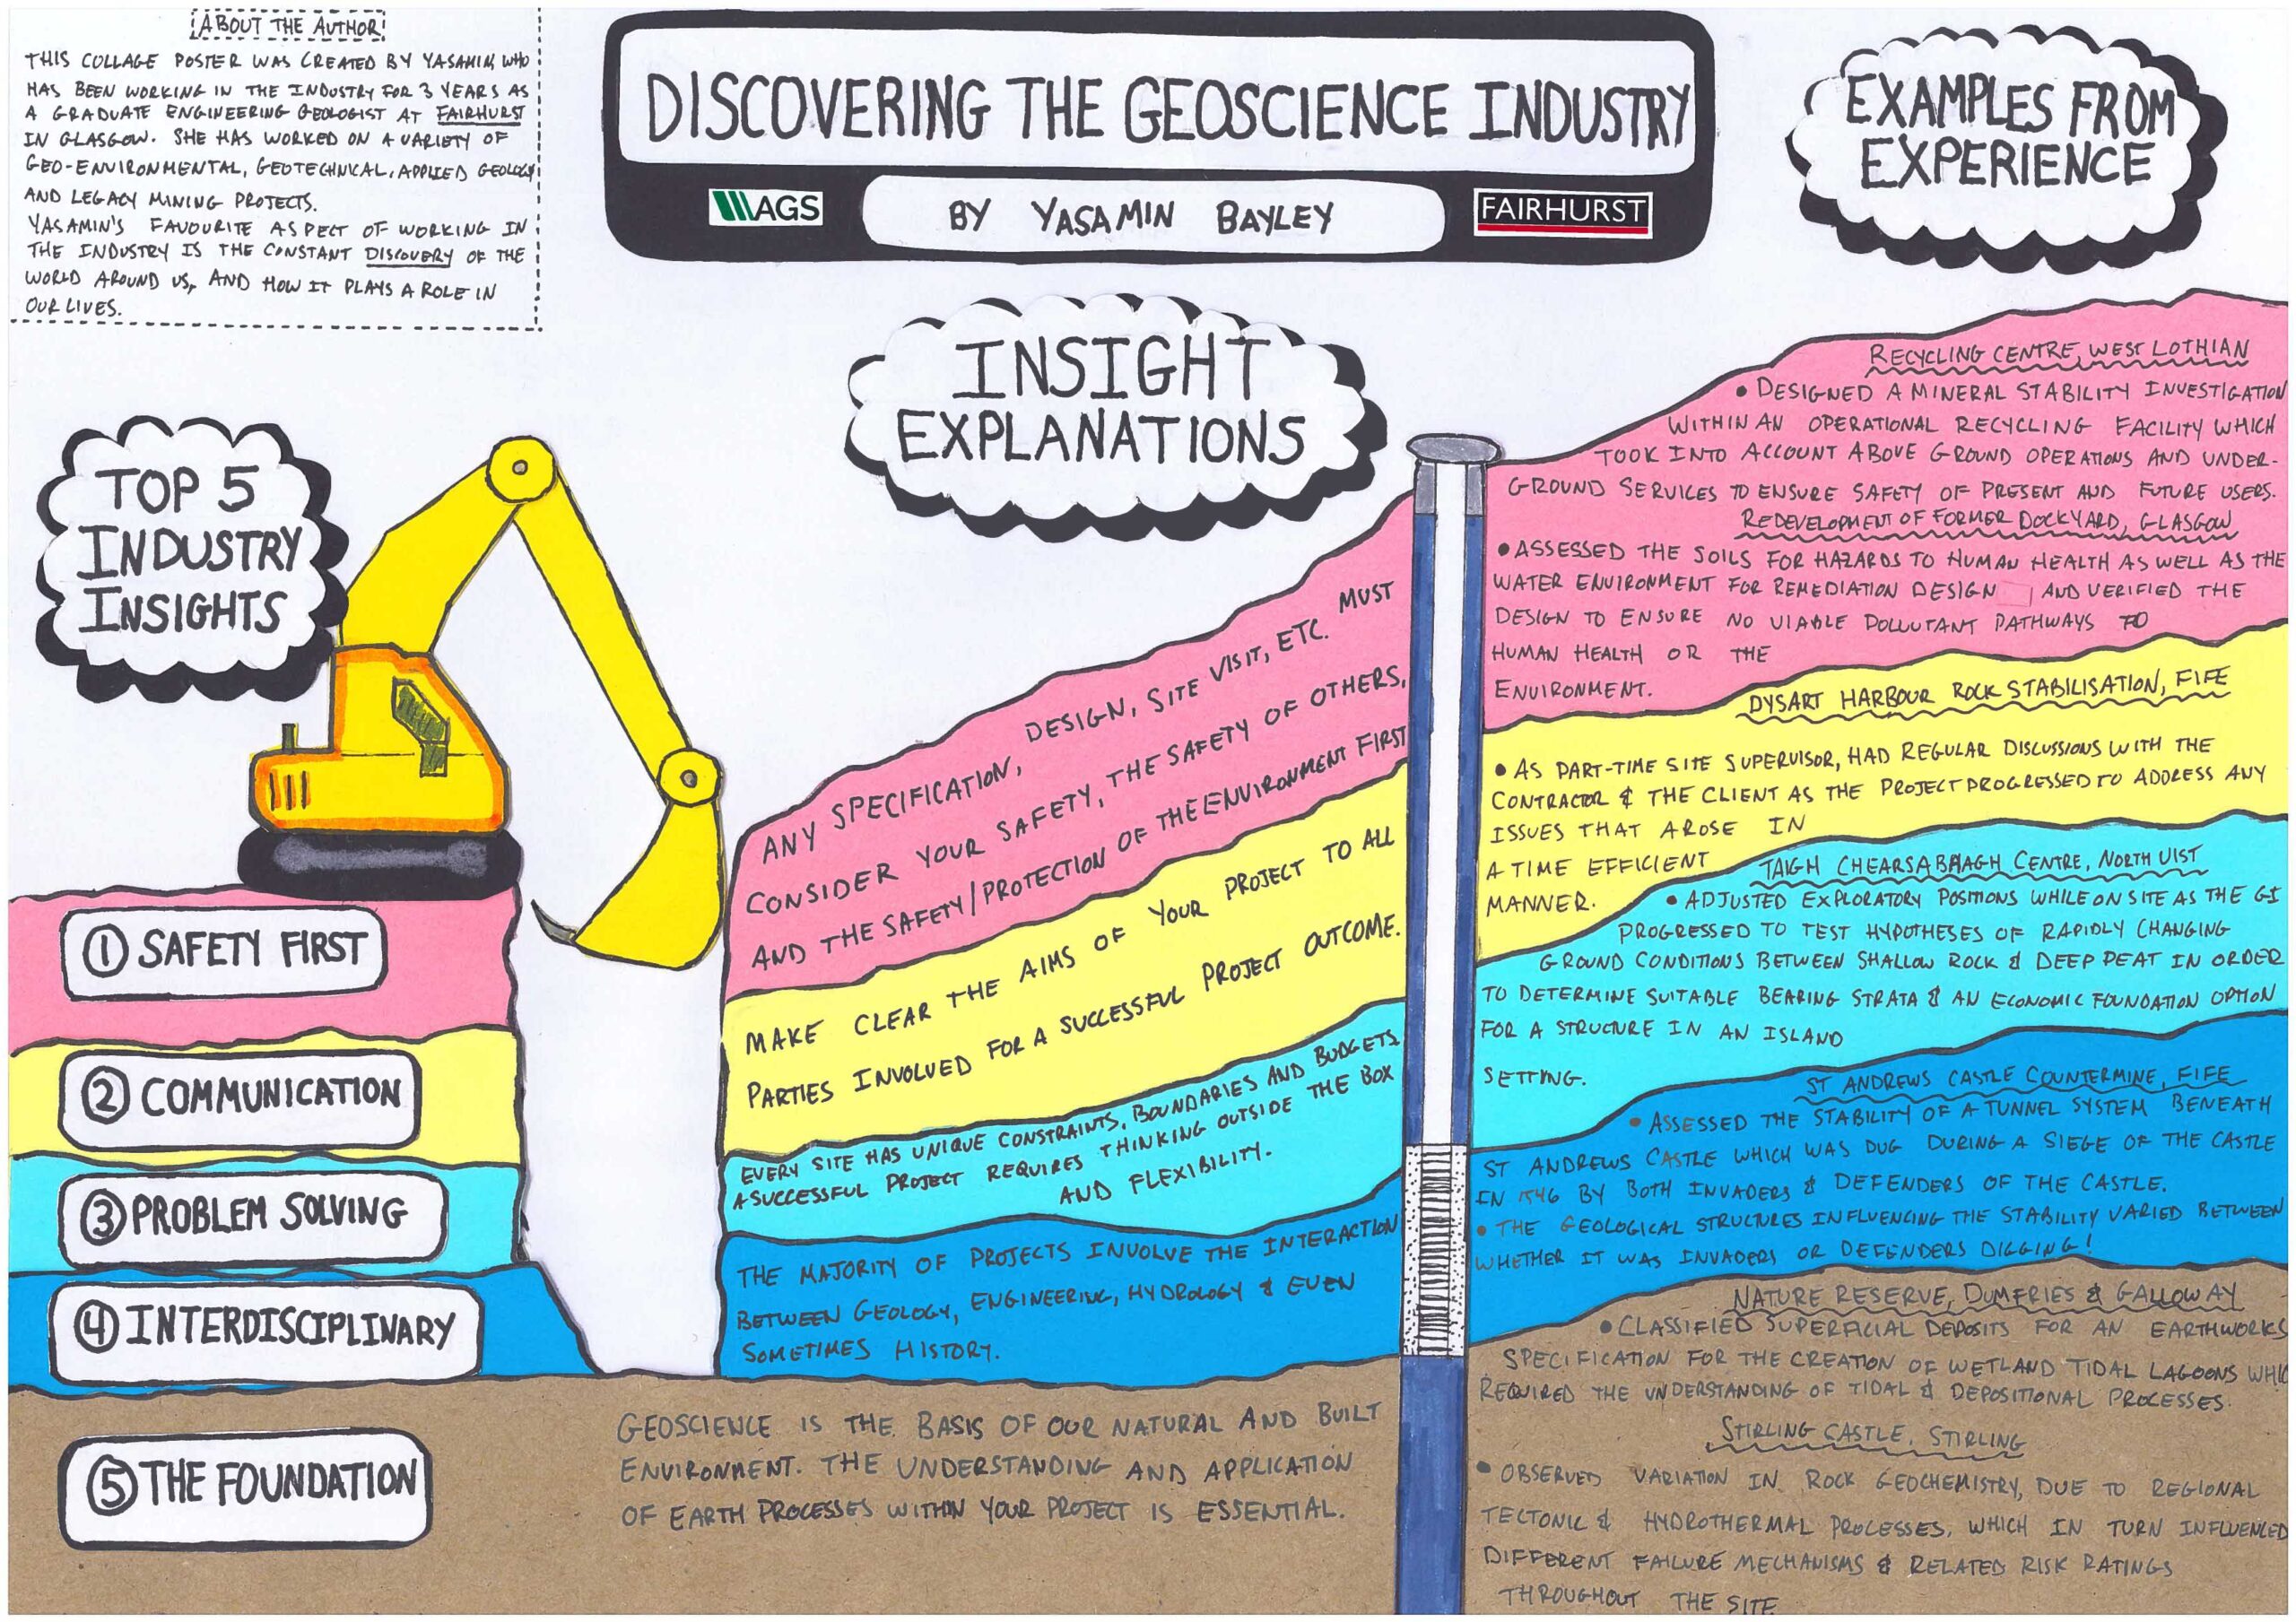 ABOUT THE AUTHOR
THIS COLLAGE POSTER WAS CREATED BY YASAMIN, WHO
HAS BEEN WORKING IN THE INDUSTRY FOR 3 YEARS AS
A GRADUATE ENGINEERING GEOLOGIST AT FAIRHURST
IN GLASGOW. SHE HAS WORKED ON A VARIETY OF
GEO-ENVIRONMENTAL, GEOTECHNICAL, APPLIED GEOLOGY
AND LEGACY MINING PROJECTS.
YASAMIN'S FAVOURITE ASPECT OF WORKING IN
THE INDUSTRY IS THE CONSTANT DISCOVERY OF THE
WORLD AROUND US, AND HOW IT PLAYS A ROLE IN
OUR LIVES.
DISCOVERING THE GEOSCIENCE INDUSTRY
AGS
BY YASAMIN BAYLEY
FAIRHURST
TOP 5
INDUSTRY
INSIGHTS
① SAFETY FIRST
② COMMUNICATION
③ PROBLEM SOLVING
④ INTERDISCIPLINARY
⑤ THE FOUNDATION
INSIGHT
EXPLANATIONS
ANY SPECIFICATION, DESIGN, SITE VISIT, ETC. MUST
CONSIDER YOUR SAFETY, THE SAFETY OF OTHERS,
AND THE SAFETY/PROTECTION OF THE ENVIRONMENT FIRST
MAKE CLEAR THE AIMS OF YOUR PROJECT TO ALL
PARTIES INVOLVED FOR A SUCCESSFUL PROJECT OUTCOME.
EVERY SITE HAS UNIQUE CONSTRAINTS, BOUNDARIES AND BUDGETS
A SUCCESSFUL PROJECT REQUIRES THINKING OUTSIDE THE BOX
AND FLEXIBILITY.
THE MAJORITY OF PROJECTS INVOLVE THE INTERACTION
BETWEEN GEOLOGY, ENGINEERING, HYDROLOGY & EVEN
SOMETIMES HISTORY.
GEOSCIENCE IS THE BASIS OF OUR NATURAL AND BUILT
ENVIRONMENT. THE UNDERSTANDING AND APPLICATION
OF EARTH PROCESSES WITHIN YOUR PROJECT IS ESSENTIAL.
EXAMPLES FROM
EXPERIENCE
RECYCLING CENTRE, WEST LOTHIAN
• DESIGNED A MINERAL STABILITY INVESTIGATION
WITHIN AN OPERATIONAL RECYCLING FACILITY WHICH
TOOK INTO ACCOUNT ABOVE GROUND OPERATIONS AND UNDER-
GROUND SERVICES TO ENSURE SAFETY OF PRESENT AND FUTURE USERS.
REDEVELOPMENT OF FORMER DOCKYARD, GLASGOW
• ASSESSED THE SOILS FOR HAZARDS TO HUMAN HEALTH AS WELL AS THE
WATER ENVIRONMENT FOR REMEDIATION DESIGN AND VERIFIED THE
DESIGN TO ENSURE NO VIABLE POLLUTANT PATHWAYS TO
HUMAN HEALTH OR THE
ENVIRONMENT.
DYSART HARBOUR ROCK STABILISATION, FIFE
• AS PART-TIME SITE SUPERVISOR, HAD REGULAR DISCUSSIONS WITH THE
CONTRACTOR & THE CLIENT AS THE PROJECT PROGRESSED TO ADDRESS ANY
ISSUES THAT AROSE IN
A TIME EFFICIENT
MANNER.
TAIGH CHEARSABHAGH CENTRE, NORTH UIST
• ADJUSTED EXPLORATORY POSITIONS WHILE ON SITE AS THE GI
PROGRESSED TO TEST HYPOTHESES OF RAPIDLY CHANGING
GROUND CONDITIONS BETWEEN SHALLOW ROCK & DEEP PEAT IN ORDER
TO DETERMINE SUITABLE BEARING STRATA & AN ECONOMIC FOUNDATION OPTION
FOR A STRUCTURE IN AN ISLAND
SETTING.
ST ANDREWS CASTLE COUNTERMINE, FIFE
• ASSESSED THE STABILITY OF A TUNNEL SYSTEM BENEATH
ST ANDREWS CASTLE WHICH WAS DUG DURING A SIEGE OF THE CASTLE
IN 1546 BY BOTH INVADERS & DEFENDERS OF THE CASTLE.
• THE GEOLOGICAL STRUCTURES INFLUENCING THE STABILITY VARIED BETWEEN
WHETHER IT WAS INVADERS OR DEFENDERS DIGGING!
NATURE RESERVE, DUMFRIES & GALLOWAY
• CLASSIFIED SUPERFICIAL DEPOSITS FOR AN EARTHWORKS
SPECIFICATION FOR THE CREATION OF WETLAND TIDAL LAGOONS WHIC
REQUIRED THE UNDERSTANDING OF TIDAL & DEPOSITIONAL PROCESSES.
STIRLING CASTLE, STIRLING
• OBSERVED VARIATION IN ROCK GEOCHEMISTRY, DUE TO REGIONAL
TECTONIC & HYDROTHERMAL PROCESSES, WHICH IN TURN INFLUENCED
DIFFERENT FAILURE MECHANISMS & RELATED RISK RATINGS
THROUGHOUT THE SITE